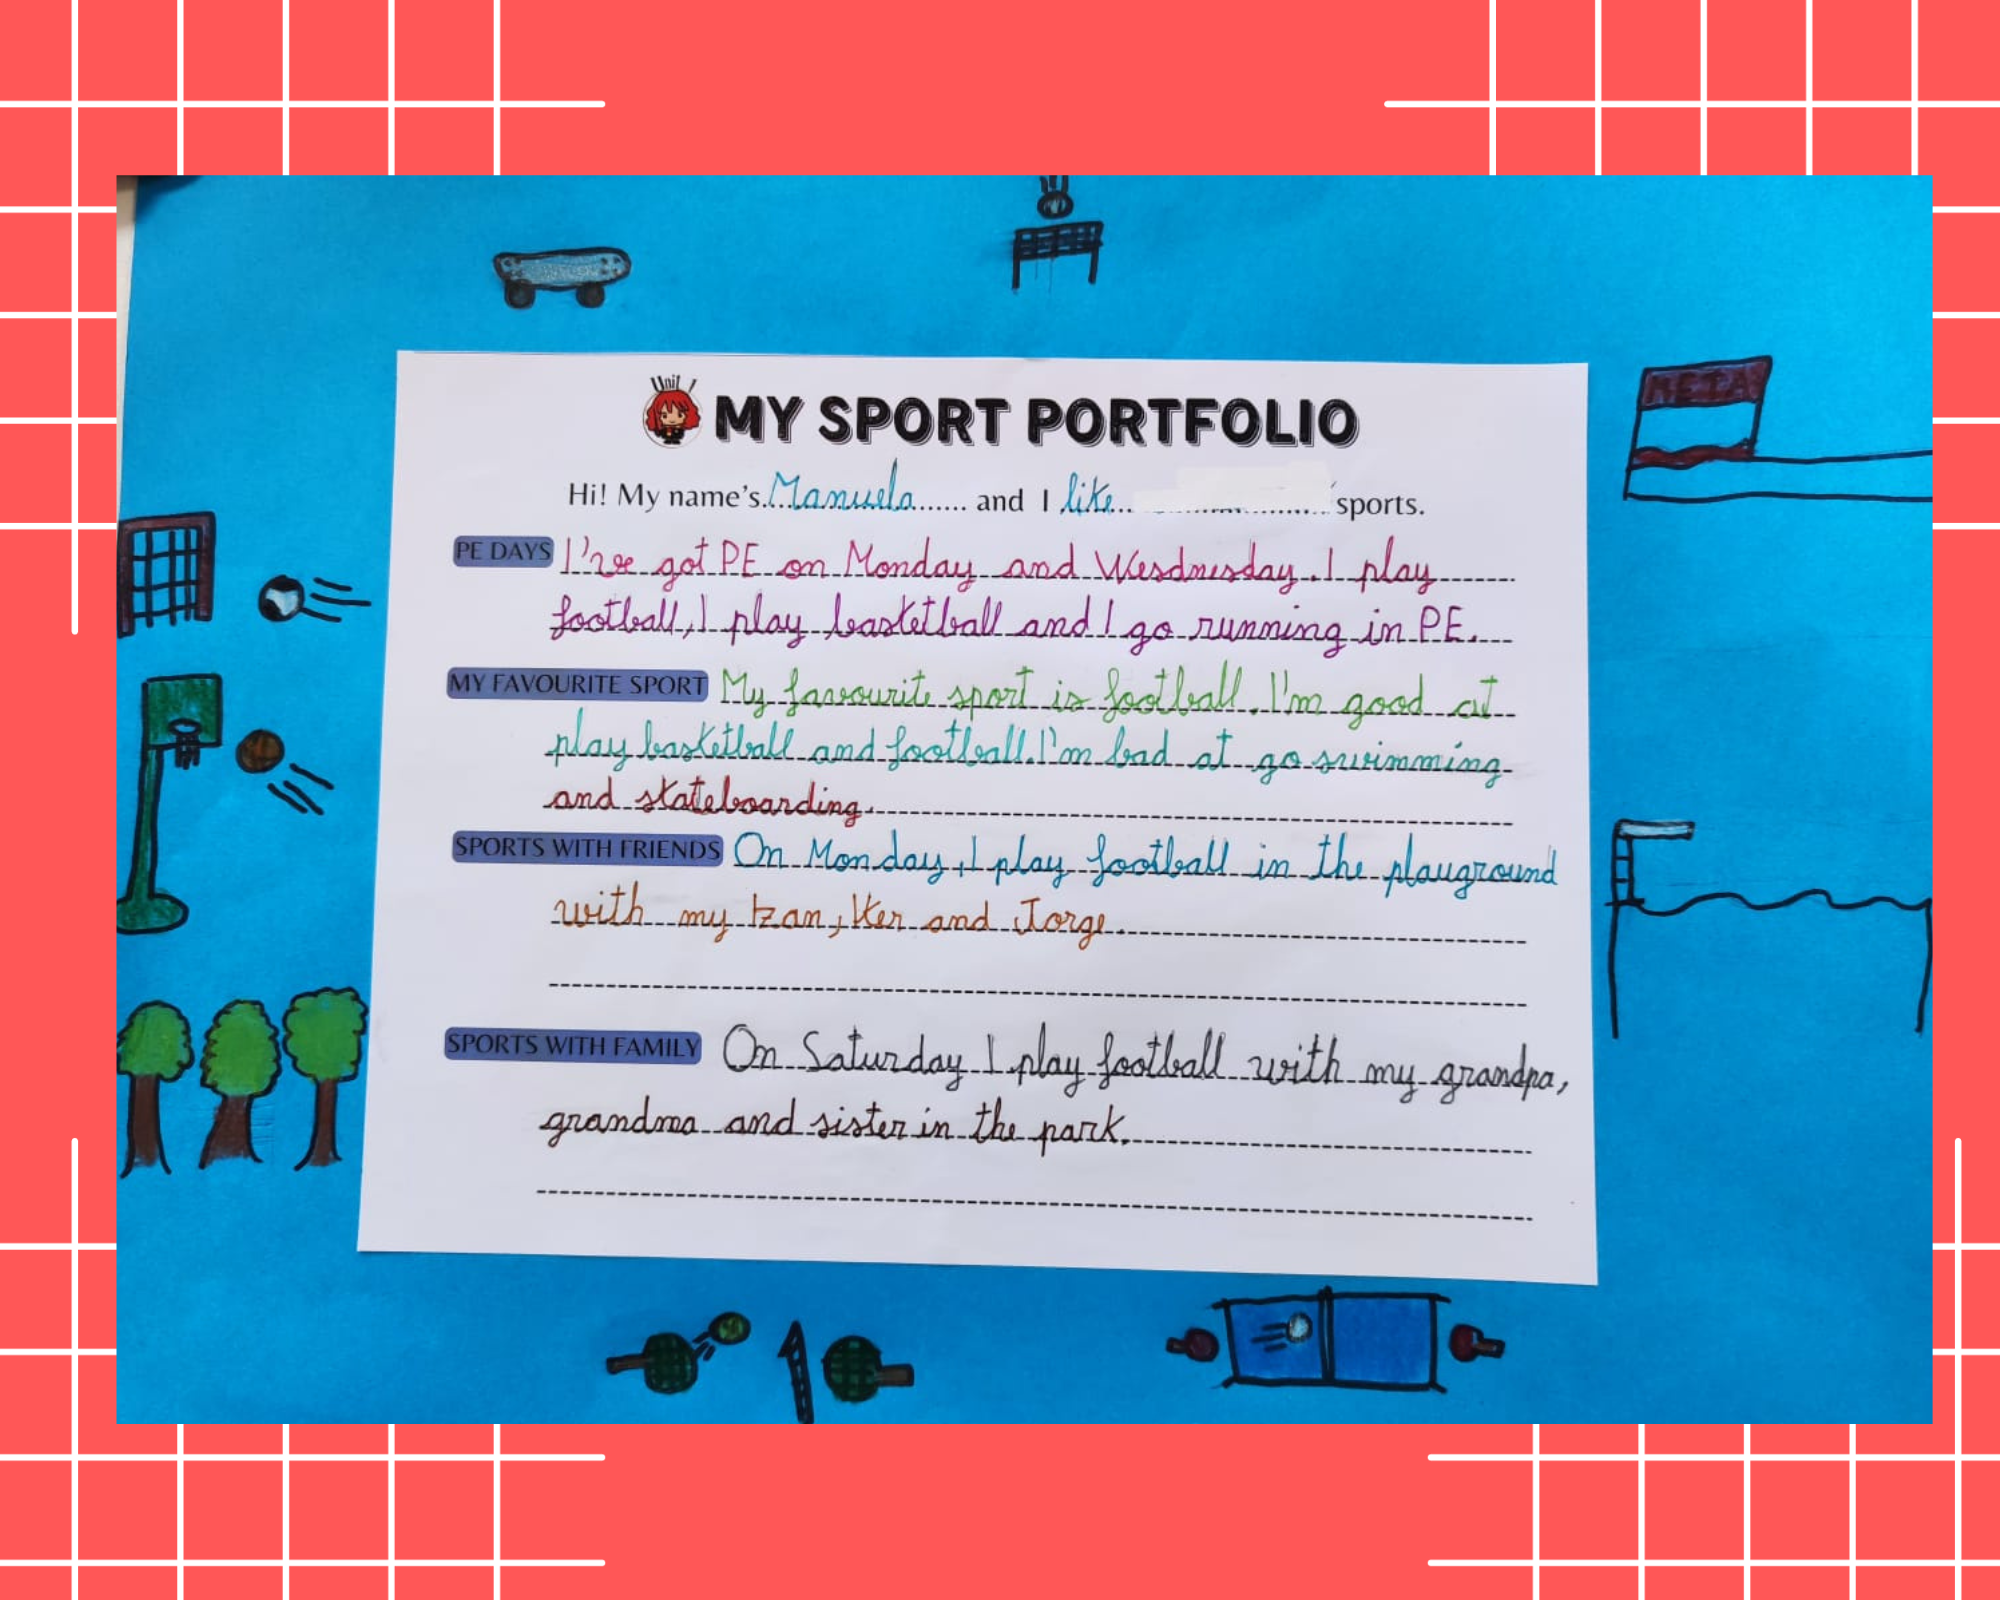 META
Unit 1
MY SPORT PORTFOLIO
Hi! My name's Manuela and I like sports.
PE DAYS I've got PE on Monday and Wesdnesday. I play
football, I play basketball and I go running in PE.
MY FAVOURITE SPORT My favourite sport is football. I'm good at
play basketball and football. I'm bad at go swimming
and skateboarding.
SPORTS WITH FRIENDS On Monday, I play football in the playground
with my Izan, Iker and Jorge.
SPORTS WITH FAMILY On Saturday I play football with my grandpa,
grandma and sister in the park.